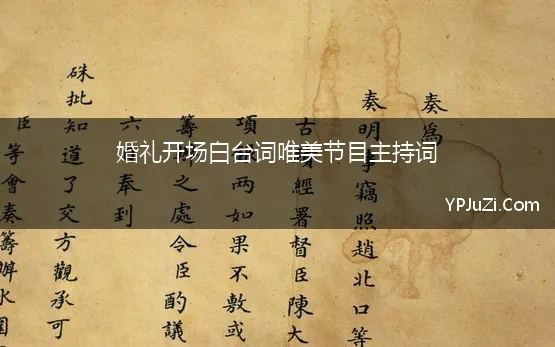 婚礼开场白台词唯美节目主持词
YPJuZi.Com
奏為
奏明事竊照趙北口等
經署督臣陳大
項兩如果不敷或
籌之處令臣酌議
六奉到
硃批知道了交方觀承可
臣等會奏籌辦水